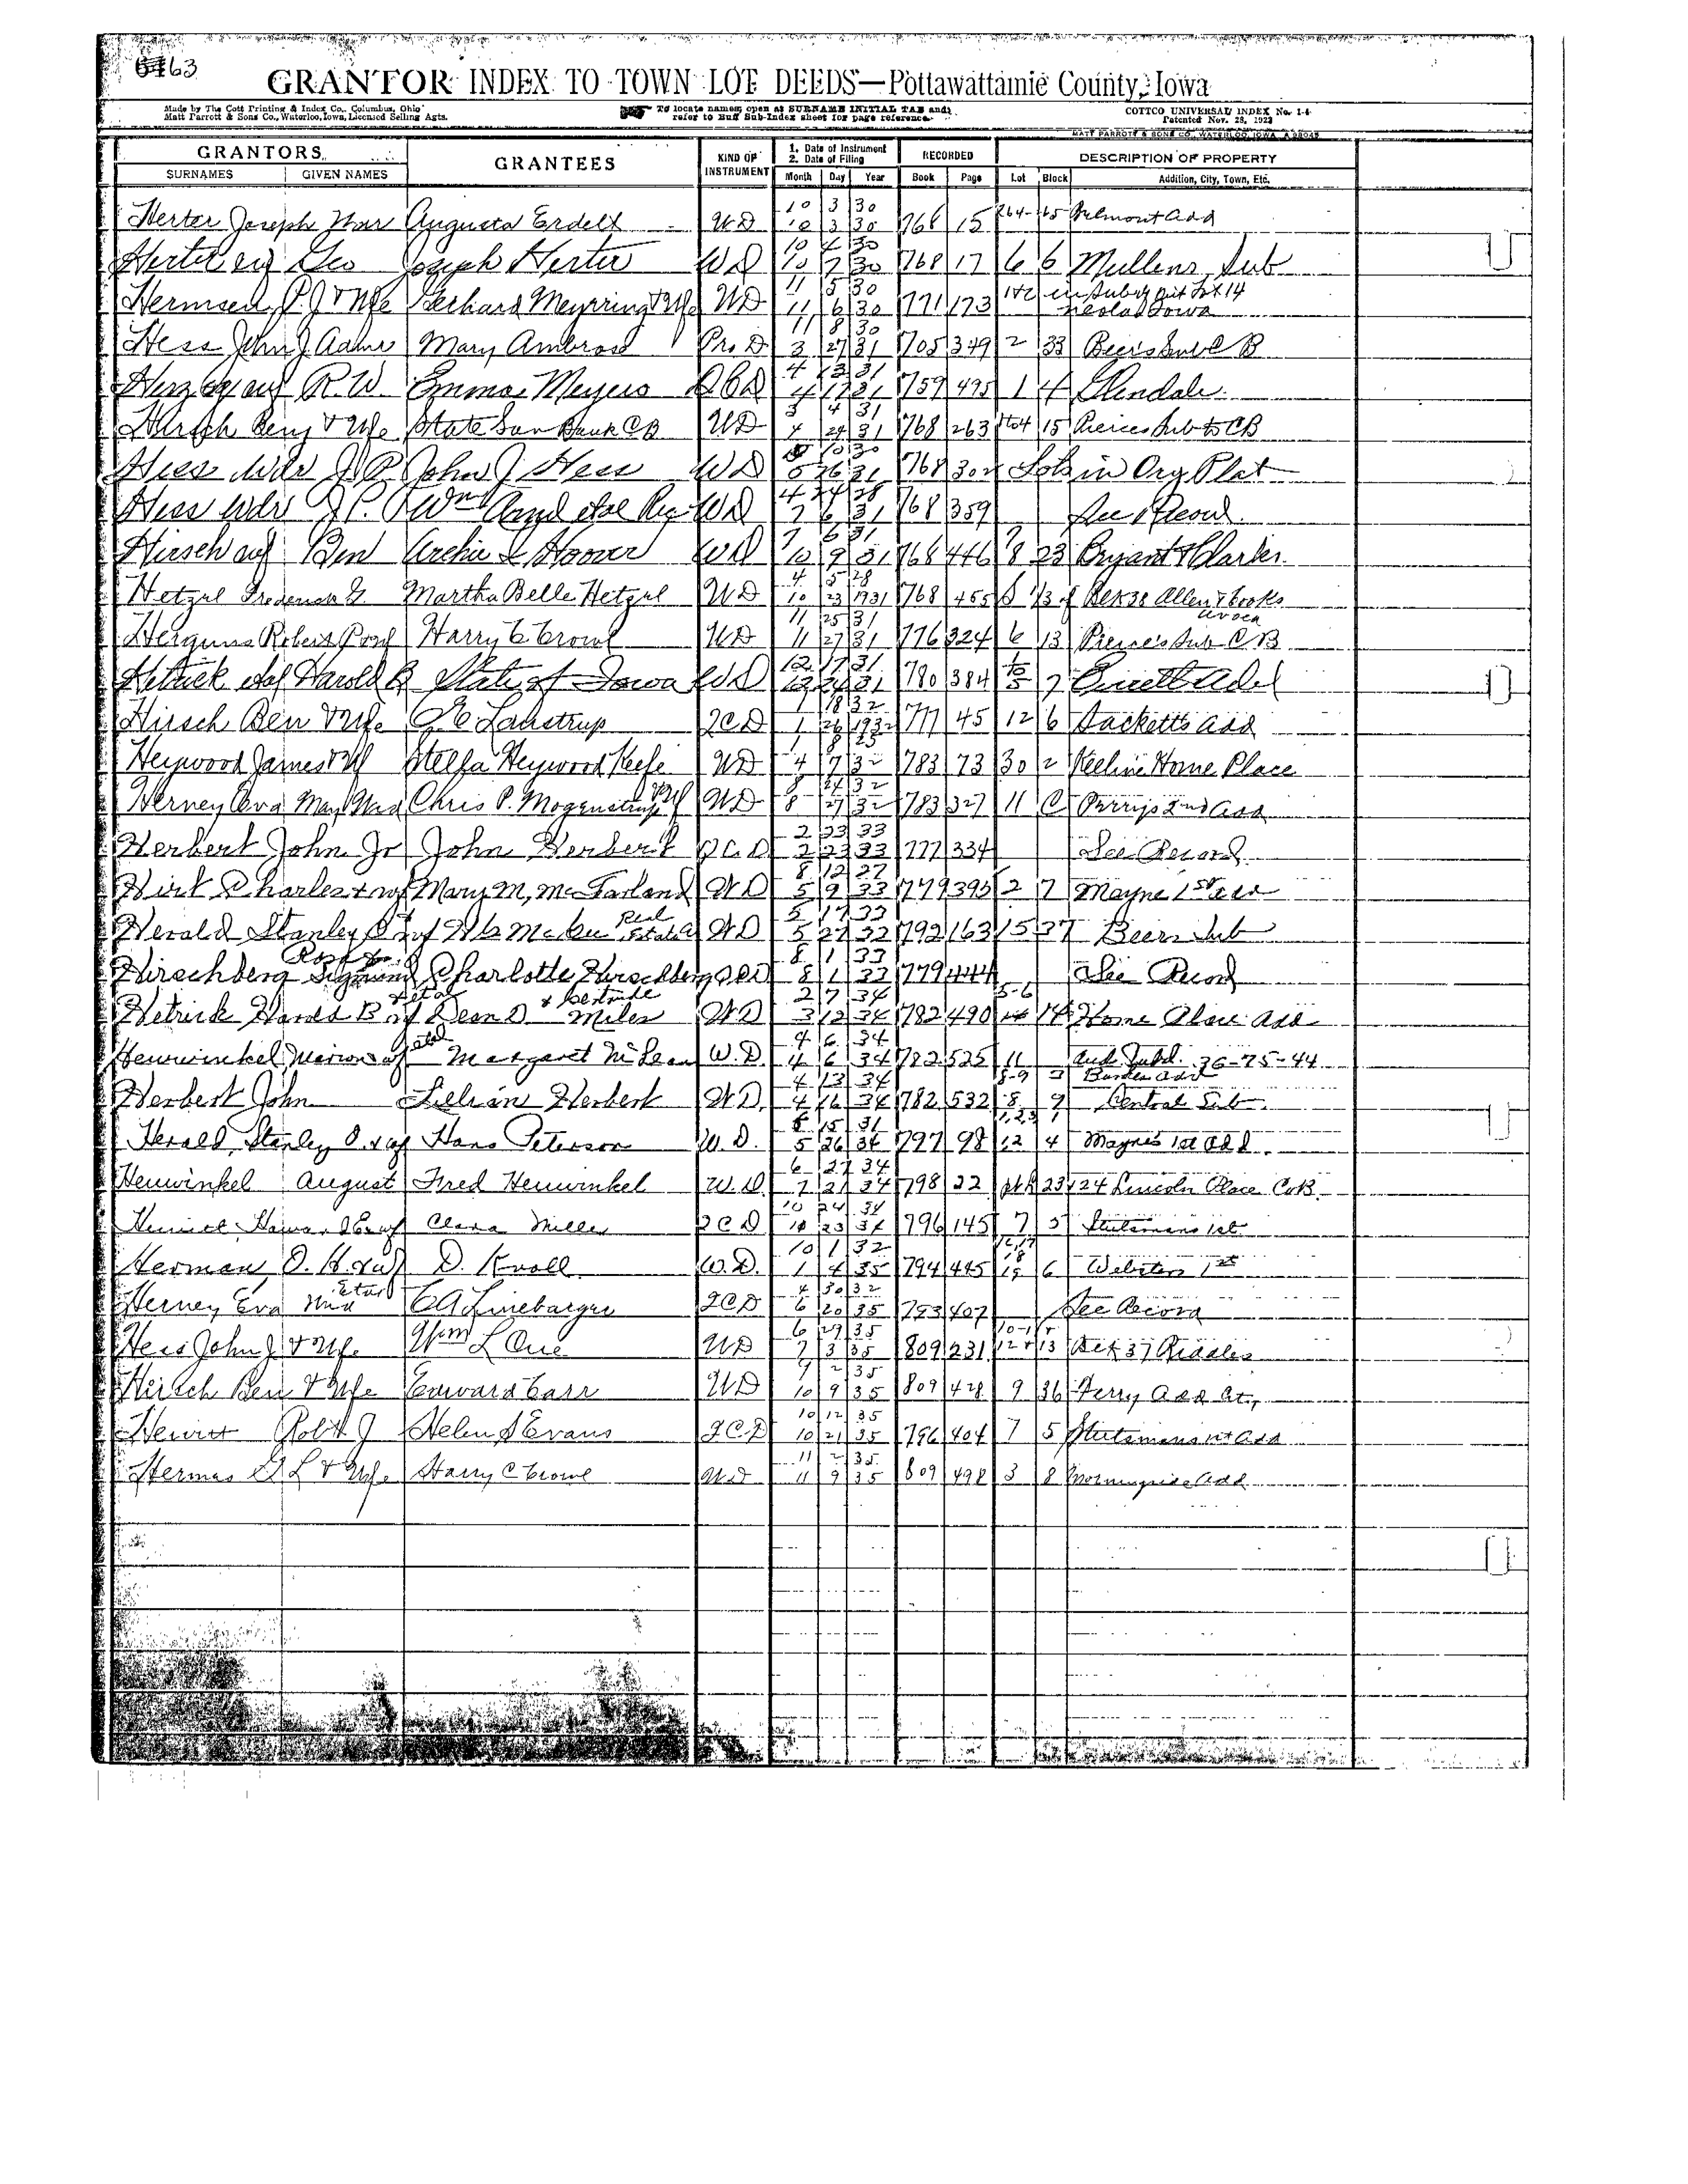 63
GRANTOR INDEX TO TOWN LOT DEEDS—Pottawattamie County, Iowa
Made by The Cott Printing & Index Co., Columbus, Ohio
Matt Parrott & Sons Co., Waterloo, Iowa, Licensed Selling Agts.
To locate names, open at SURNAME INITIAL TAB and
refer to Buff Sub-Index sheet for page reference.
COTTCO UNIVERSAL INDEX No. 1-4
Patented Nov. 28, 1922
MATT PARROTT & SONS CO., WATERLOO, IOWA
GRANTORS GRANTEES KIND OF INSTRUMENT 1. Date of Instrument 2. Date of Filing RECORDED DESCRIPTION OF PROPERTY
SURNAMES GIVEN NAMES Month Day Year Book Page Lot Block Addition, City, Town, Etc.
10 3 30
Herter Joseph Augusta Erdelt WD 10 3 30 768 15 Belmont Add
10 4 30
Herter Geo Joseph Herter WD 10 7 30 768 17 6 6 Mullens Sub
11 5 30
P. J. & Wife Gerhard Meyrring & Wife WD 11 6 30 771 173 in Sub of Lot 14
Neola Iowa
11 8 30
Hess John J Admr Mary Ambrose Pro D 3 27 31 705 349 2 33 Beers Sub C B
4 13 31
R. W. Emma Meyers QCD 4 17 31 759 495 1 4 Glendale
3 4 31
Hirsch Benj & Wife State Sav Bank C B WD 4 24 31 768 263 15 Pierces Sub to C B
Hess wdr J. P. John J Hess WD 5 26 31 768 302 Lots in Org Plat
4 24 28
Hess wdr J. P. Wm WD 7 6 31 768 359 See Record
7 6 31
Hirsch Ben Archie L Hoover WD 10 9 31 768 446 8 23 Bryant & Clarks
4 5 28
Hetzel Frederick G. Martha Belle Hetzel WD 10 23 1931 768 455 S 1/3 of Allen & Cooks
Avoca
11 25 31
Robert Harry C Crowl WD 11 27 31 776 324 6 13 Pierce's Sub C B
12 17 31
Hetrick Harold B State of Iowa WD 12 31 780 384 7
1 18 32
Hirsch Ben & Wife Lanstrup QCD 1 26 1932 777 45 12 6 Sacketts Add
1 8 25
Heywood James & Wf Stella Heywood Keefe WD 4 7 32 783 73 30 2 Keeline Home Place
8 24 32
Herney Eva May Wid Chris P. Mogensen & Wf WD 8 27 32 783 327 11 C Perrys 2nd Add
2 23 33
Herbert John Jr John Herbert QCD 2 23 33 777 334 See Record
8 12 27
Hirt Charles & wf Mary M. McFarland WD 5 9 33 779 395 2 7 Mayne 1st Add
5 17 33
Real
Herald Stanley O & wf McGee Estate WD 5 27 33 792 163 15 37 Beers Sub
8 1 33
Hirschberg Sigmund Charlotte Hirschberg QCD 8 1 33 779 444 See Record
et al & Gertrude 2 7 34 5-6
Hetrick Harold B Dean D Miles WD 3 12 34 782 490 14 Home Place Add
et al 4 6 34
Heuwinkel Marion Margaret McLean W.D. 4 6 34 782 525 11 Aud Subd. 36-75-44
4 13 34 8-9 3
Herbert John Lillian Herbert WD 4 16 34 782 532 8 9 Central Sub
5 15 31
Herald, Stanley O. & wf Hans Peterson W.D. 5 26 34 797 98 12 4 Mayne's 1st Add
6 27 34
Heuwinkel August Fred Heuwinkel W.D. 7 21 34 798 22 23 & 24 Lincoln Place C B
10 24 34
Clara Miller QCD 10 23 34 796 145 7 5 Stutsmans 1st
10 1 32
Herman O. H. & wf D. Knoll W.D. 1 4 35 794 445 6 Websters 1st
Et al 4 30 32
Herney Eva Wid C A Linebarger QCD 6 20 35 793 407 See Record
6 29 35
Hess John J & Wife Wm L WD 7 3 35 809 231 12 & 13 Riddles
9 2 35
Hirsch Ben & Wife Edward Carr WD 10 9 35 809 428 9 36 Ferry Add
10 12 35
Hewitt Robt J Helen S Evans QCD 10 21 35 796 404 7 5 Stutsmans 1st Add
11 2 35
Hermas G L & Wife Harry C Crowl WD 11 9 35 809 498 3 8 Morningside Add